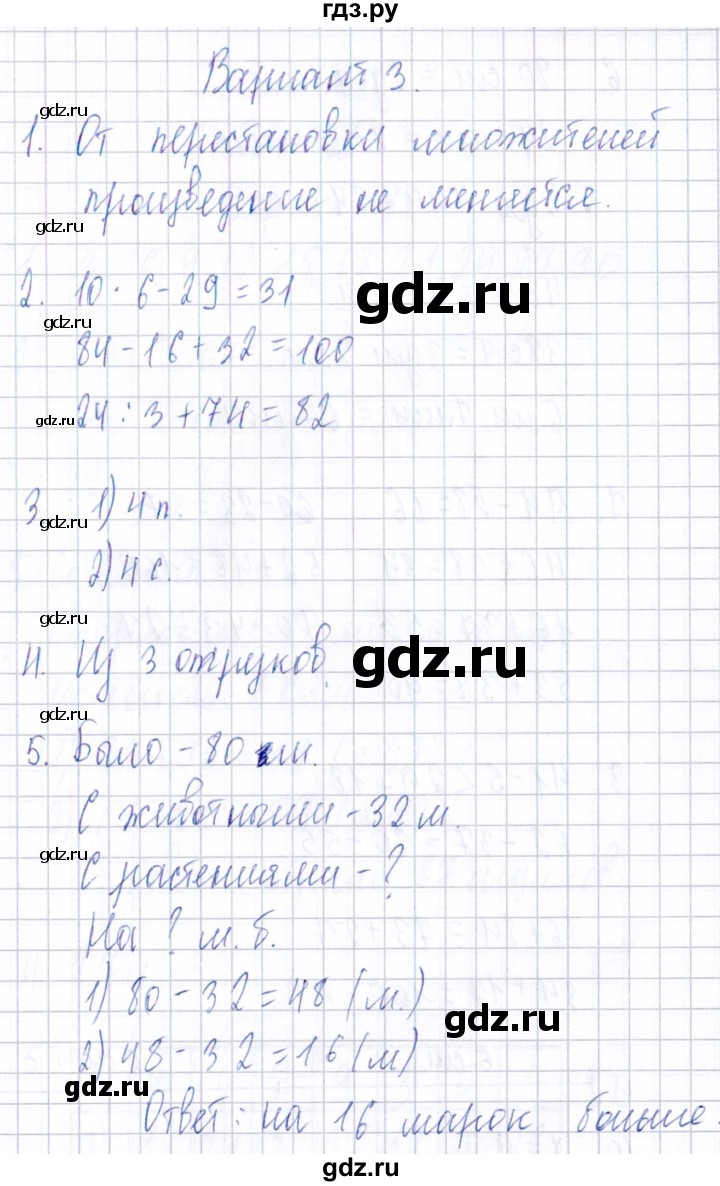 гдз.ру
Вариант 3.
gdz.ru
1. От перестановки множителей
произведение не меняется.
gdz.ru
2. 10 · 6 - 29 = 31
gdz.ru
gdz.ru
84 - 16 + 32 = 100
gdz.ru
24 : 3 + 74 = 82
3 1) 4 п.
gdz.ru
2) 4 с.
gdz.ru
4. Из 3 отрезков.
gdz.ru
gdz.ru
5. Было - 80 м.
С животными - 32 м.
gdz.ru
С растениями - ?
На ? м. б.
1) 80 - 32 = 48 (м.)
gdz.ru
2) 48 - 32 = 16 (м)
gdz.ru
Ответ: на 16 марок больше.
gdz.ru